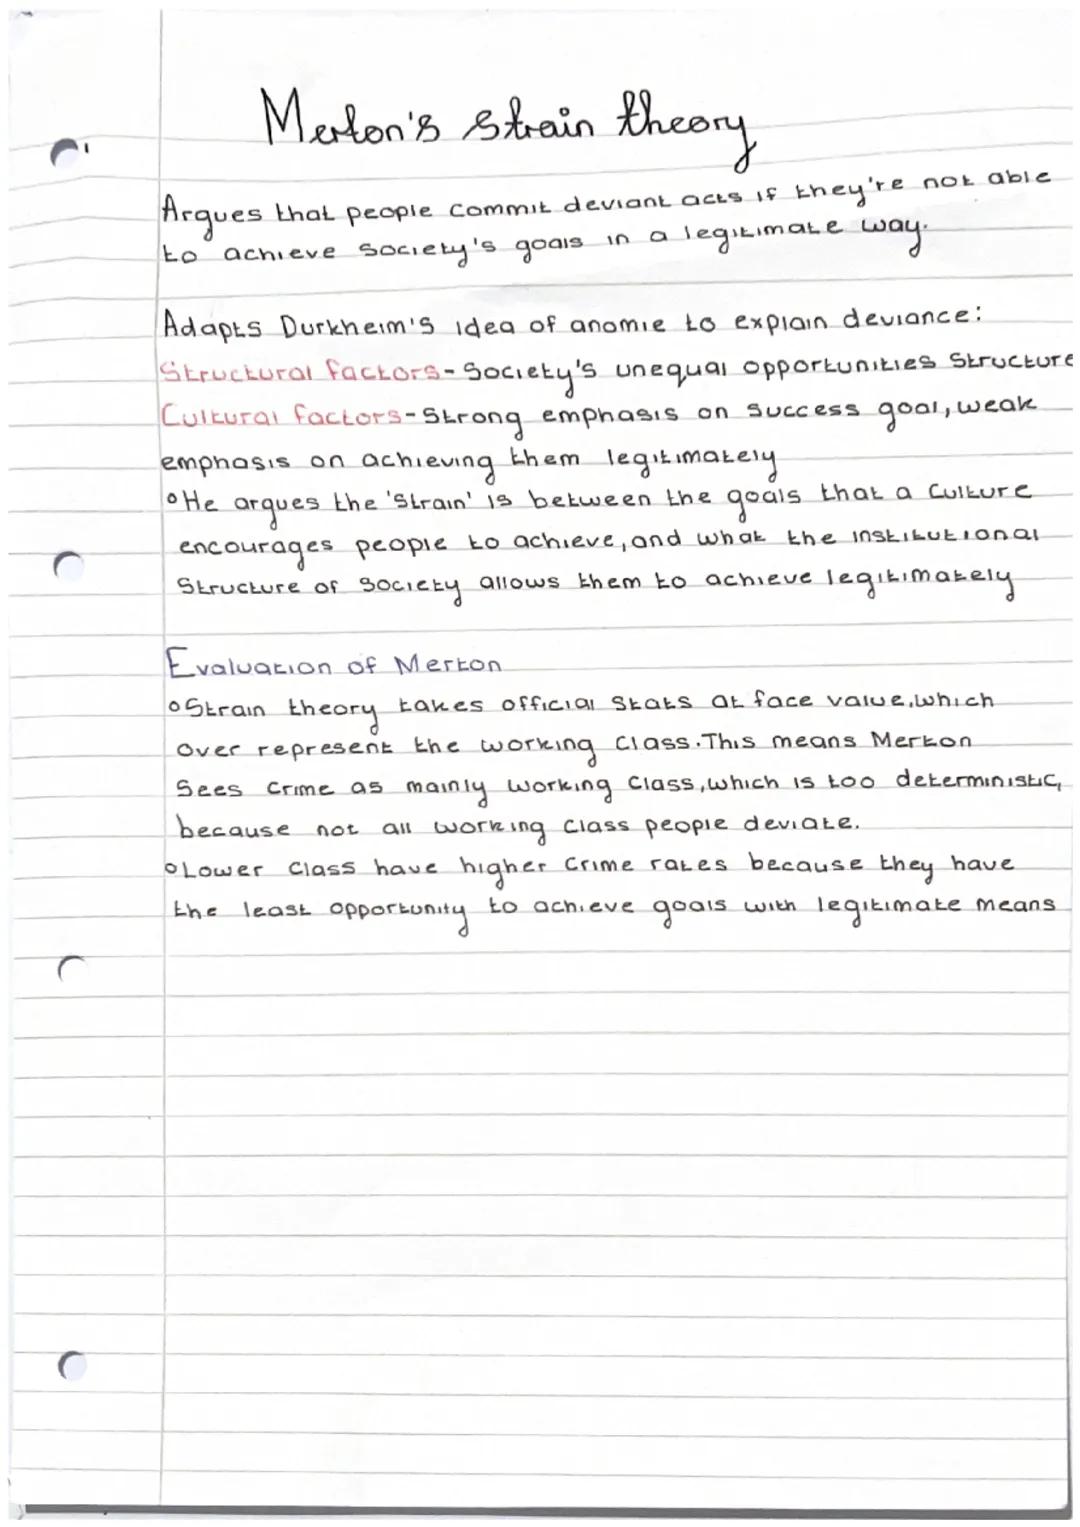 Merton's strain theory
Argues that people commit deviant acts if they're not able
to achieve society's goals in a legitimate way.
Adapts Durkheim's idea of anomie to explain deviance:
Structural factors - Society's unequal opportunities structure
Cultural factors - Strong emphasis on success goal, weak
emphasis on achieving them legitimately
• He argues the 'strain' is between the goals that a culture
encourages people to achieve, and what the institutional
structure of society allows them to achieve legitimately
Evaluation of Merton
• Strain theory takes official stats at face value, which
over represent the working class. This means Merton
sees crime as mainly working class, which is too deterministic,
because not all working class people deviate.
• Lower class have higher crime rates because they have
the least opportunity to achieve goals with legitimate means